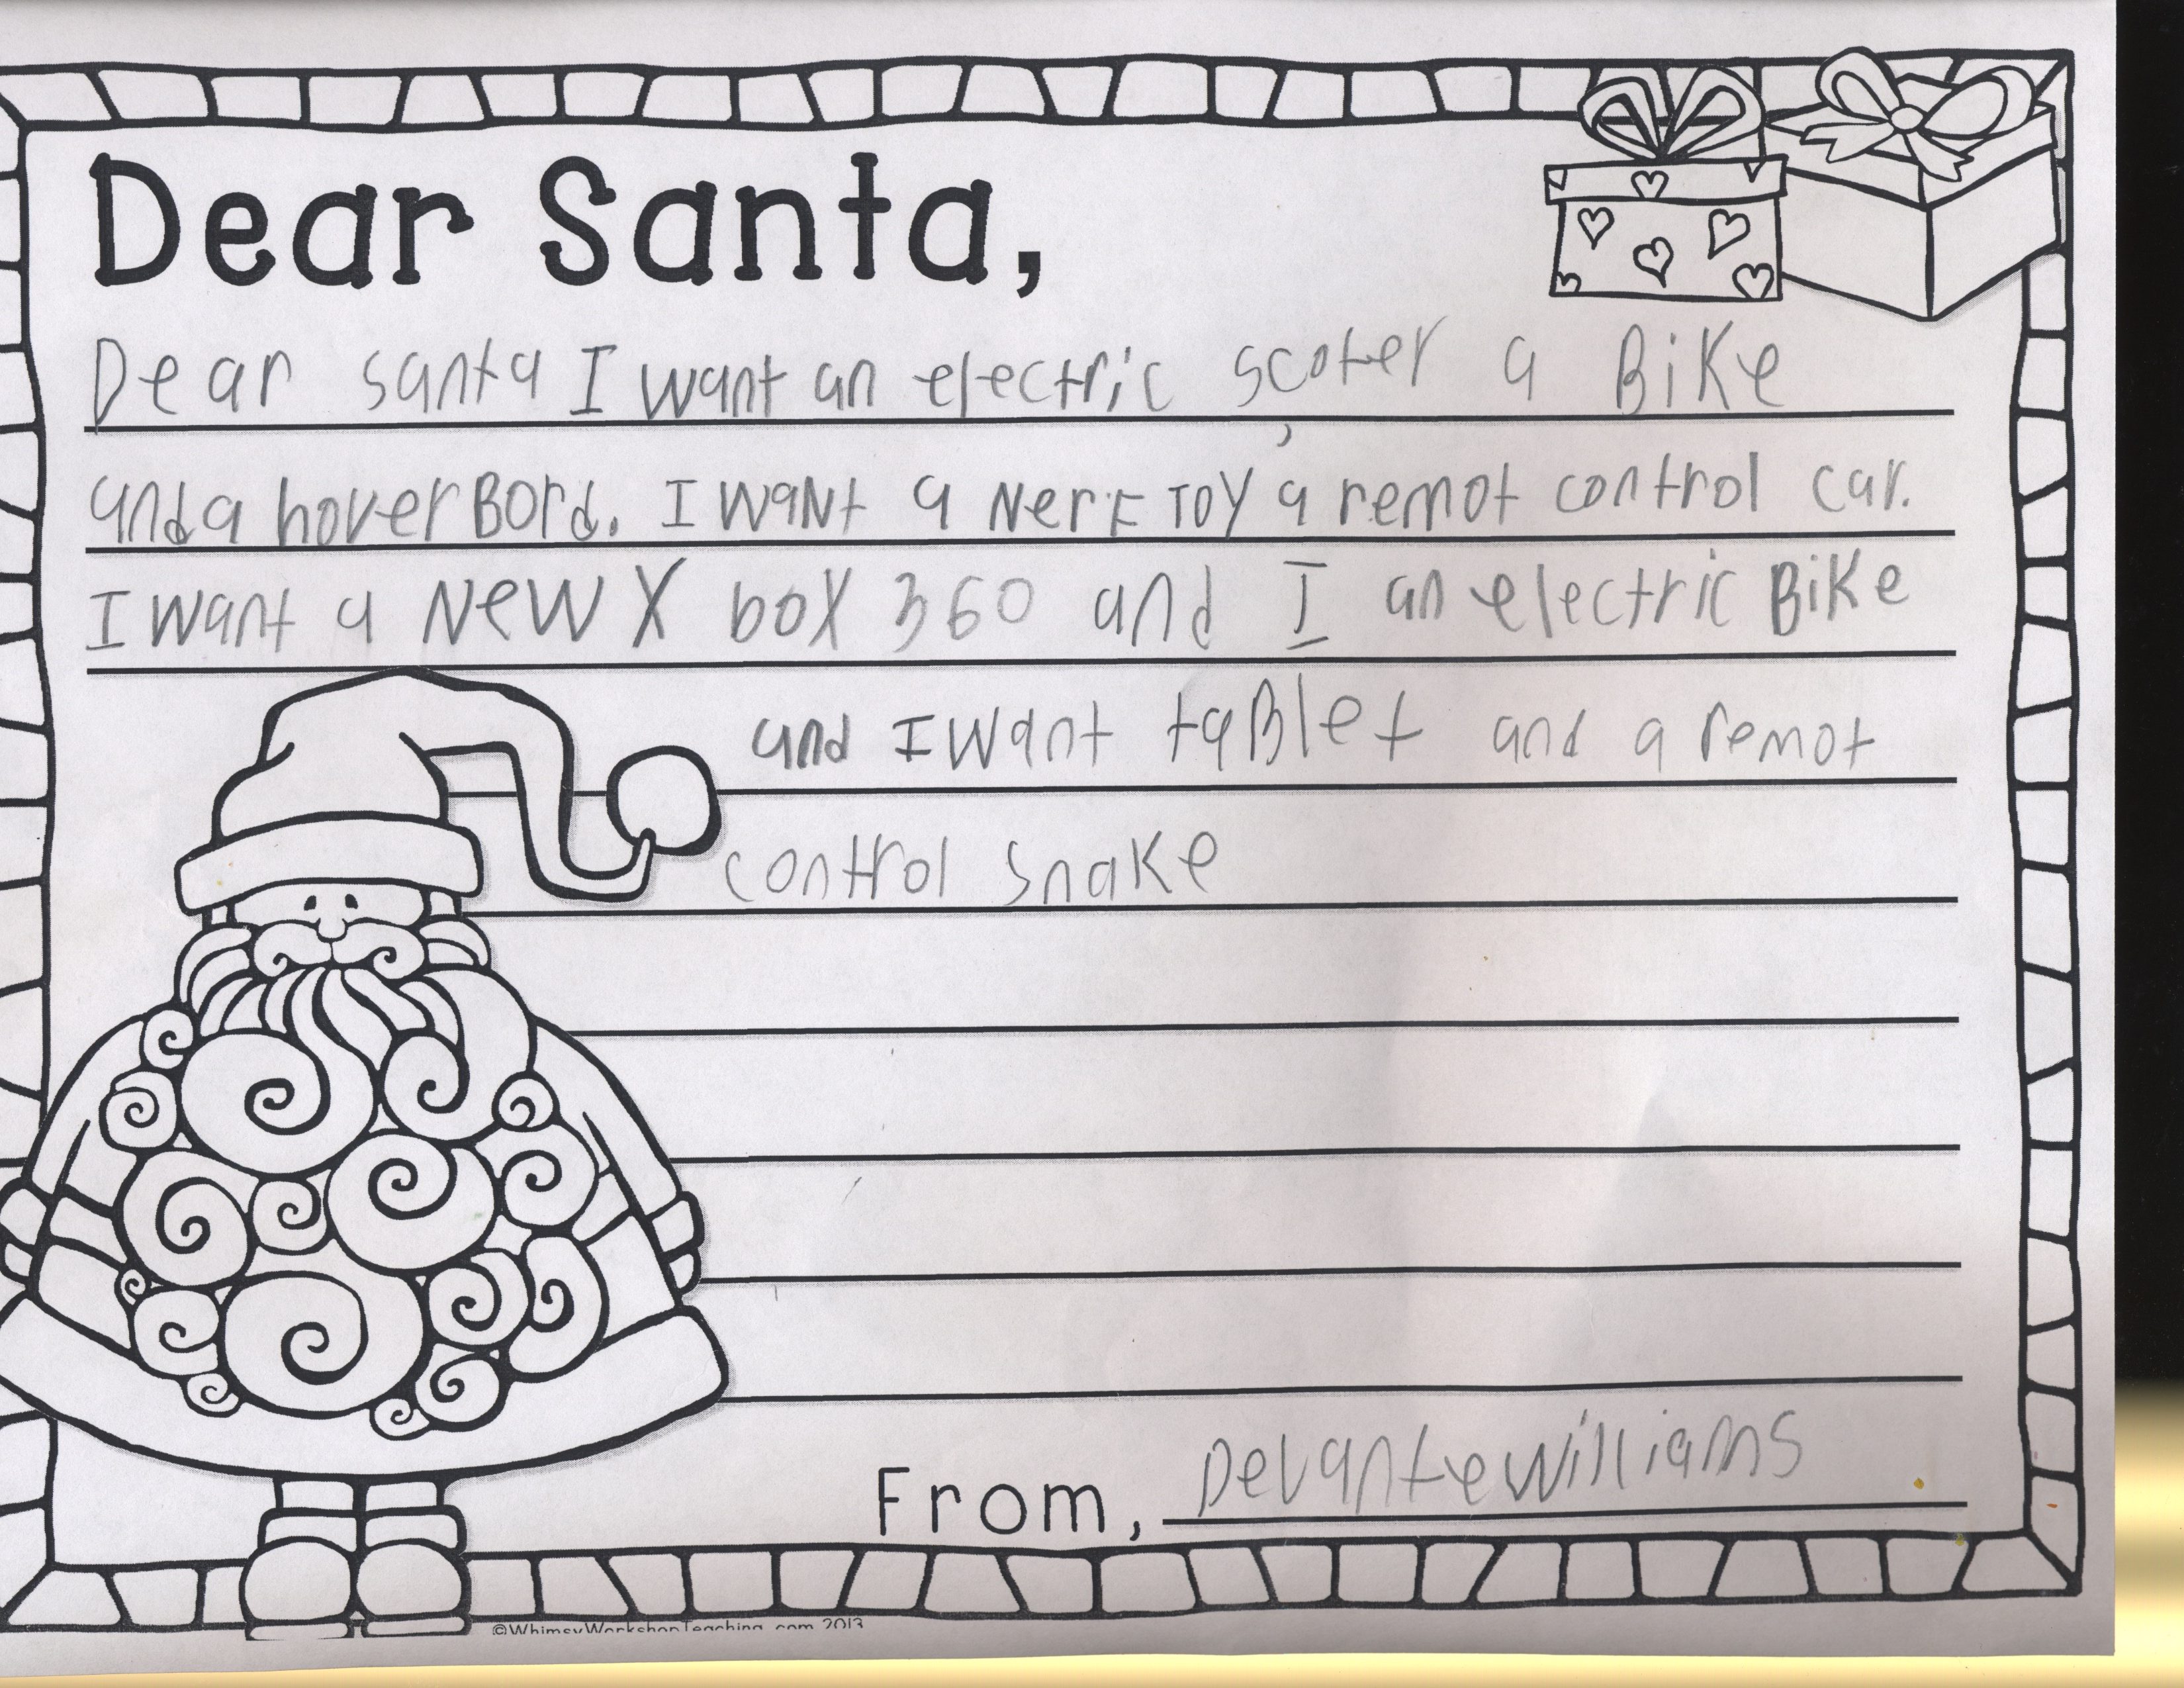 Dear Santa,
Dear santa I want an electric scoter a BiKe
and a hoverBord. I waNt a NerF Toy, a remot control car.
I want a NeW X box 360 and I an electric BiKe
and I want taBlet and a remot
control snaKe
From, Devante Williams
©WhimsyWorkshopTeaching.com 2013